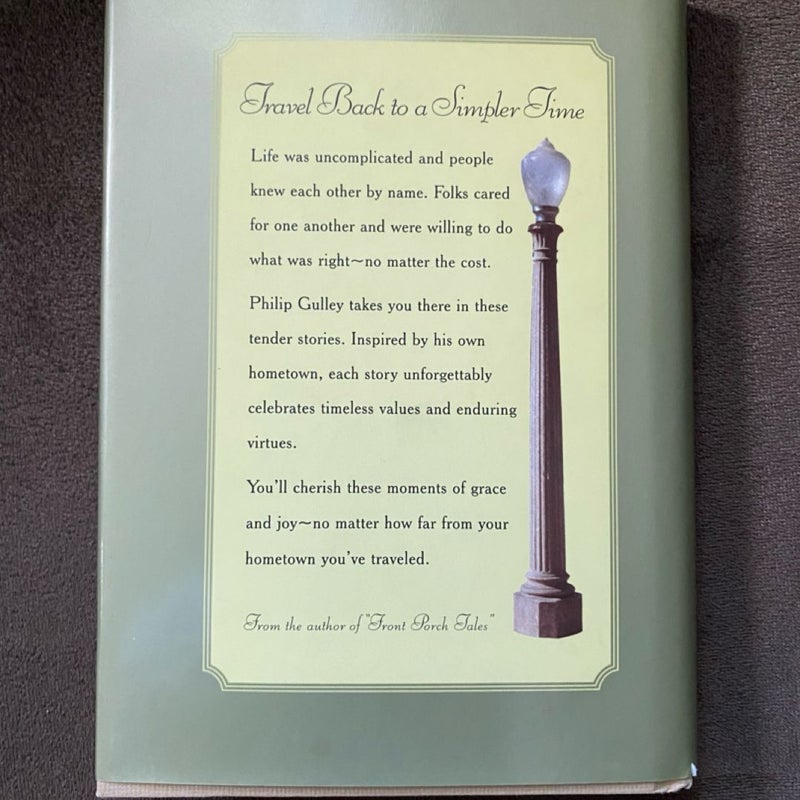 Travel Back to a Simpler Time
Life was uncomplicated and people
knew each other by name. Folks cared
for one another and were willing to do
what was right~no matter the cost.
Philip Gulley takes you there in these
tender stories. Inspired by his own
hometown, each story unforgettably
celebrates timeless values and enduring
virtues.
You'll cherish these moments of grace
and joy~no matter how far from your
hometown you've traveled.
From the author of "Front Porch Tales"